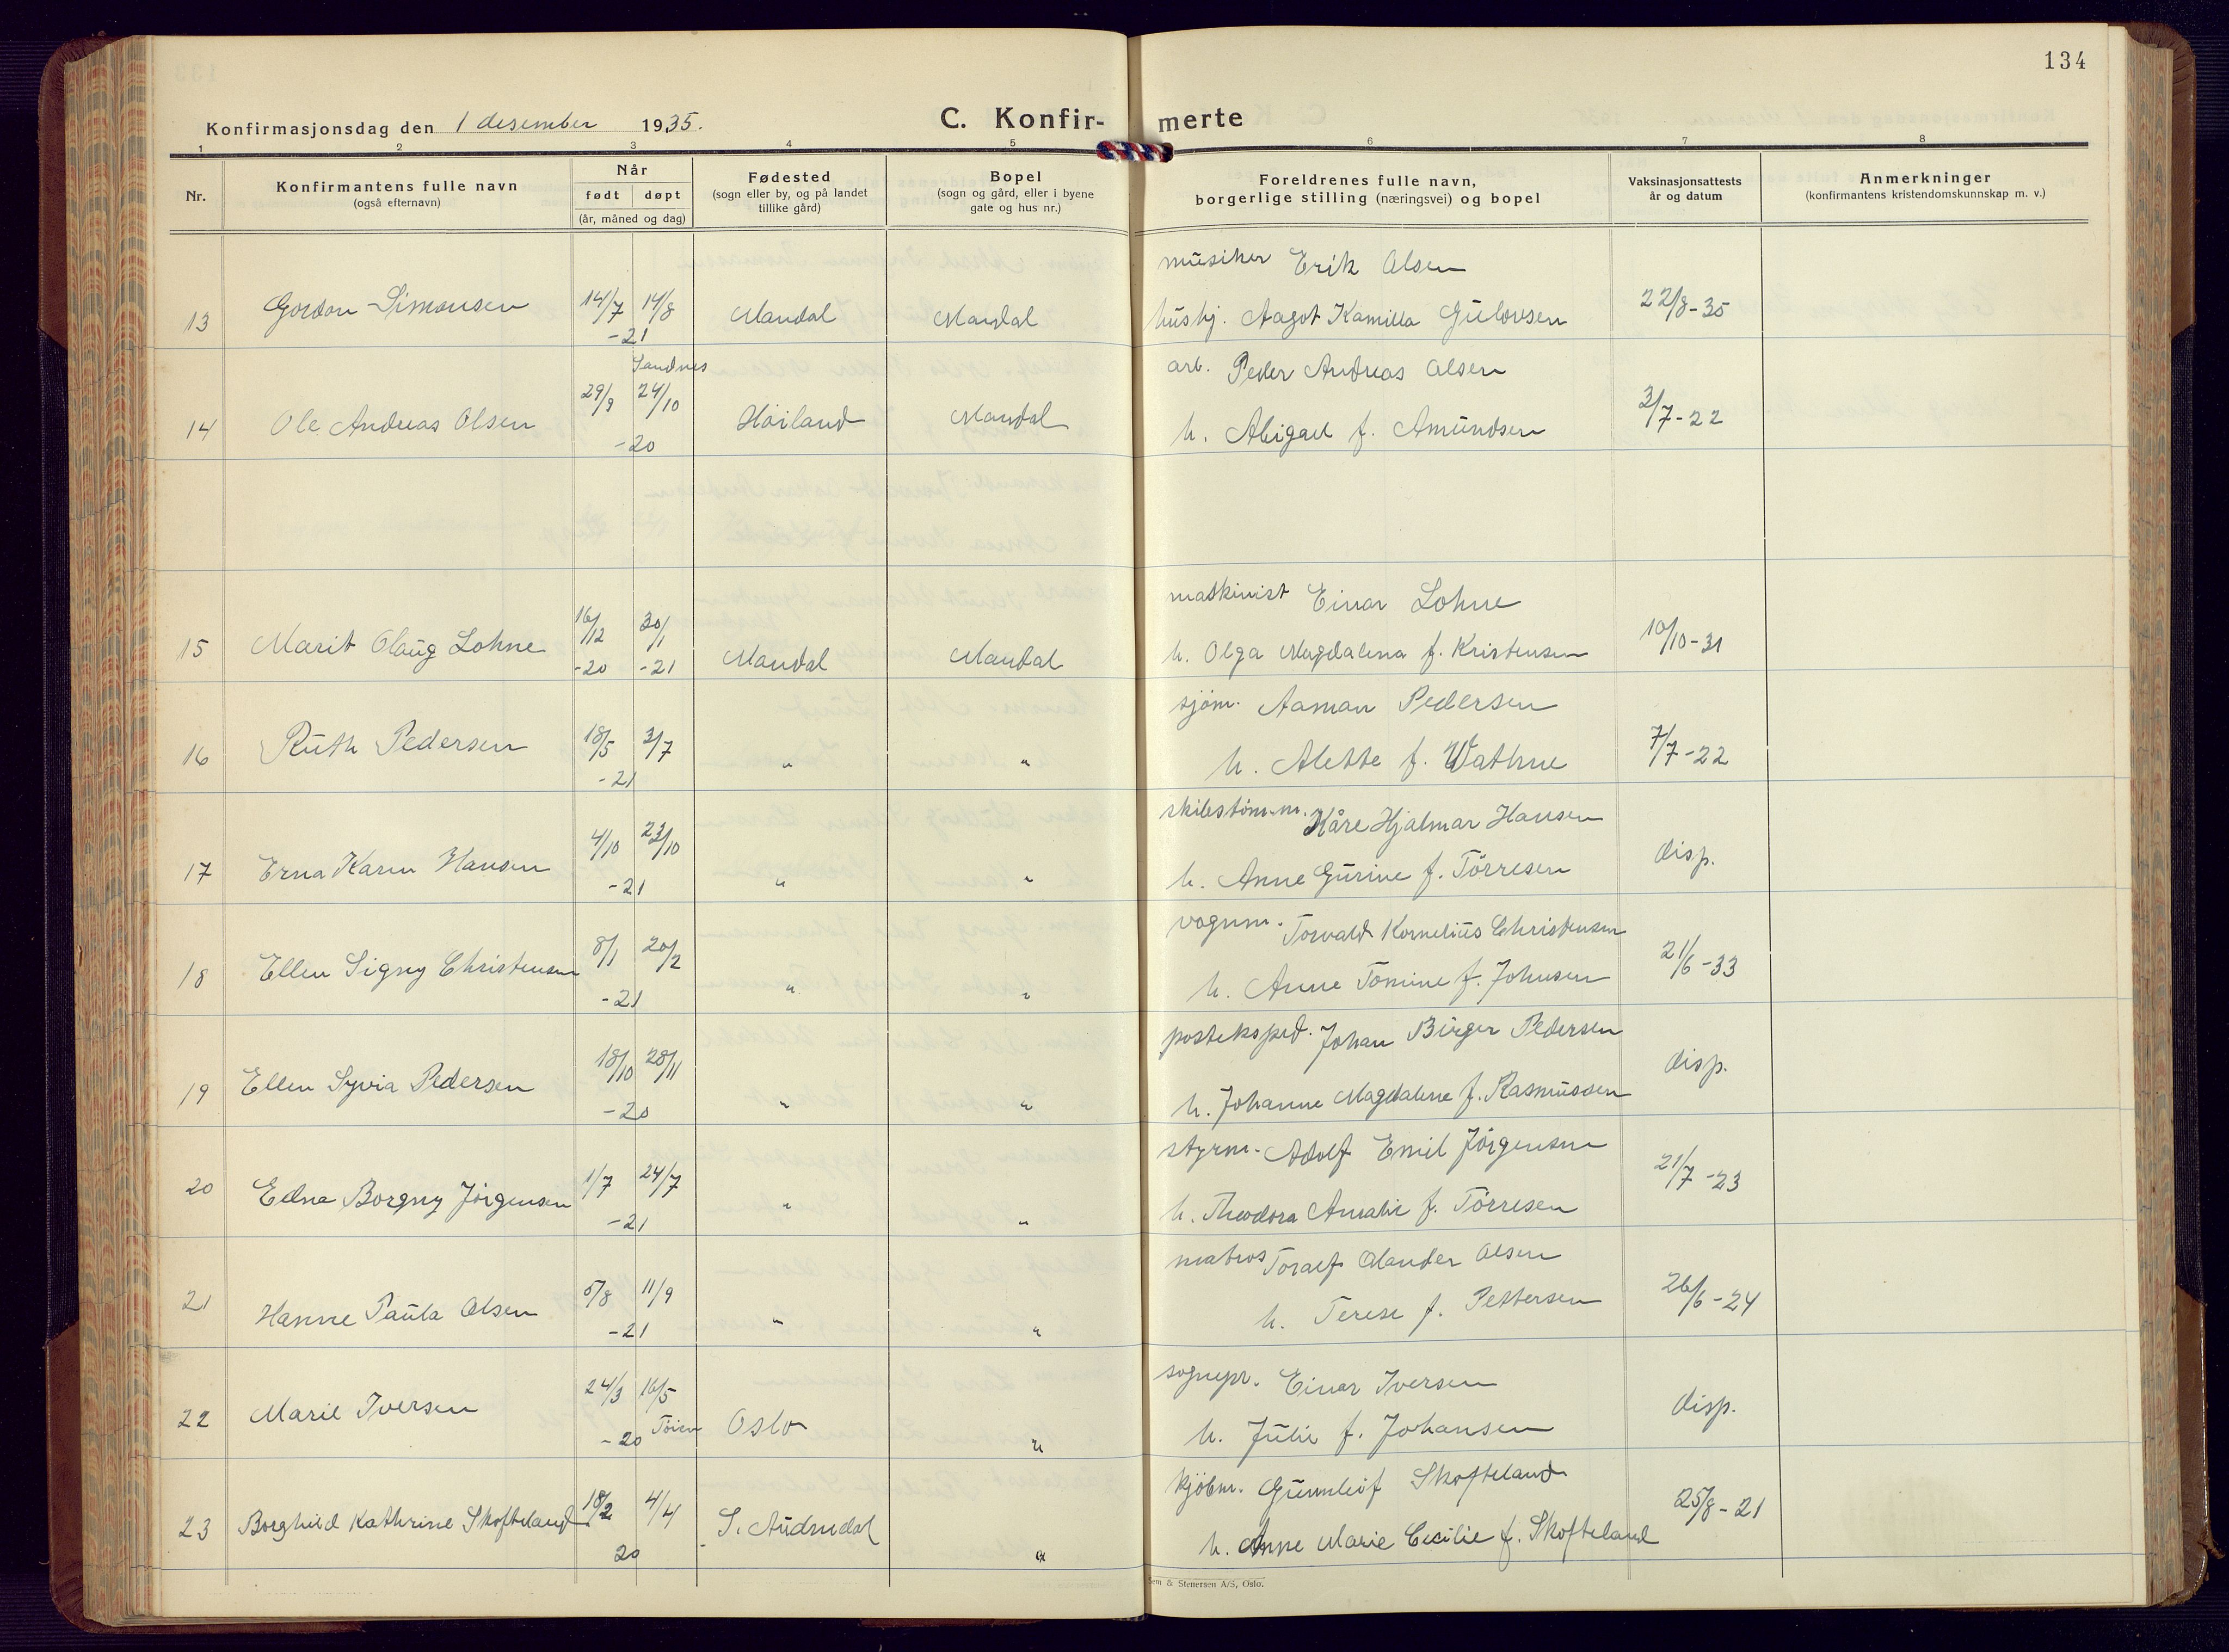 134
Konfirmasjonsdag den 1 desember 1935.
C. Konfir- merte
1 2 3 4 5 6 7 8
Nr.
Konfirmantens fulle navn
(også efternavn)
Når
født døpt
(år, måned og dag)
Fødested
(sogn eller by, og på landet
tillike gård)
Bopel
(sogn og gård, eller i byene
gate og hus nr.)
Foreldrenes fulle navn,
borgerlige stilling (næringsvei) og bopel
Vaksinasjonsattests
år og datum
Anmerkninger
(konfirmantens kristendomskunnskap m. v.)
musiker Erik Olsen
13 Gordon Simonsen 14/7 14/8 Mandal Mandal hushj. Aagot Kamilla Gulovsen 22/8-35
-21
Sandnes
arb. Peder Andreas Olsen
14 Ole Andreas Olsen 29/9 24/10 Høiland Mandal h. Abigael f. Amundsen 3/7-22
-20
maskinist Einar Lohne
15 Marit Olaug Lohne 16/12 30/1 Mandal Mandal h. Olga Magdalena f. Kristensen 10/10-31
-20 -21
sjøm. Aaman Pedersen
16 Ruth Pedersen 18/5 3/7 " " h. Alette f. Wathne 7/7-22
-21
skibstøm.m. Kåre Hjalmar Hansen
17 Erna Karen Hansen 4/10 23/10 " " h. Anne Gurine f. Tørresen disp.
-21
vognm. Torvald Kornelius Christensen
18 Ellen Signy Christensen 8/1 20/2 " " h. Anne Tomine f. Johnsen 21/6-33
-21
posteksped. Johan Birger Pedersen
19 Ellen Syvia Pedersen 18/10 28/11 " " h. Johanne Magdalene f. Rasmussen disp.
-20
styrm. Adolf Emil Jörgensen
20 Edna Borgny Jörgensen 1/7 24/7 " " h. Theodora Amalie f. Tørresen 21/7-23
-21
matros Toralf Olander Olsen
21 Hanne Paula Olsen 5/8 11/9 " " h. Terese f. Pettersen 26/6-24
-21
sognepr. Einar Iversen
22 Marie Iversen 24/3 16/5 Oslo " h. Julie f. Johansen disp.
-20 Töien
kjöbm. Gunnleif Skofteland
23 Borghild Kathrine Skofteland 18/2 4/4 S. Audnedal " h. Anne Marie Cecilie f. Skofteland 25/8-21
20
Sem & Stenersen A/S, Oslo.